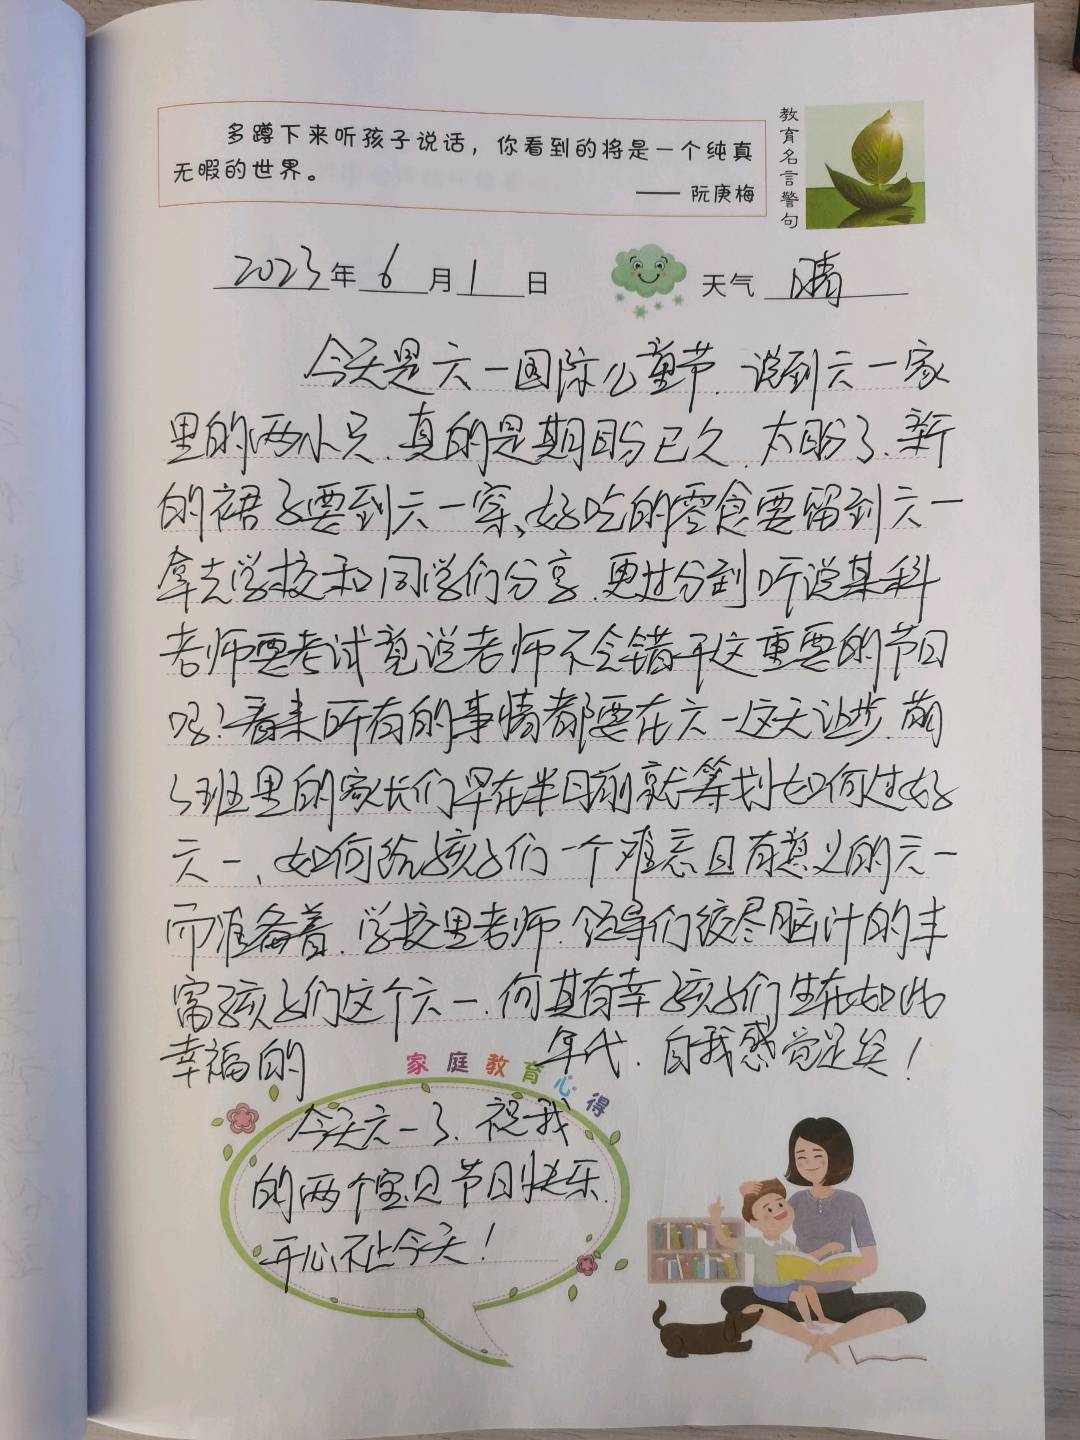 多蹲下来听孩子说话，你看到的将是一个纯真
无暇的世界。
—— 阮庚梅
教育名言警句
2023年 6 月 1 日 天气 晴
今天是六一国际儿童节.说到六一家
里的两小只.真的是期盼已久.太盼了.新
的裙子要到六一穿、好吃的零食要留到六一
拿去学校和同学们分享.更过分到听说某科
老师要考试竟说老师不会错干这重要的节日
吗？看来所有的事情都要在六一这天让步.
班里的家长们早在半月前就筹划如何过好
六一、如何给孩子们一个难忘且有意义的六一
而准备着.学校里老师.领导们绞尽脑汁的丰
富孩子们这个六一.何其有幸孩子们生在如此
幸福的 年代.自我感觉足矣！
家庭教育心得
今天六一了.祝我
的两个宝贝节日快乐.
开心不止今天！